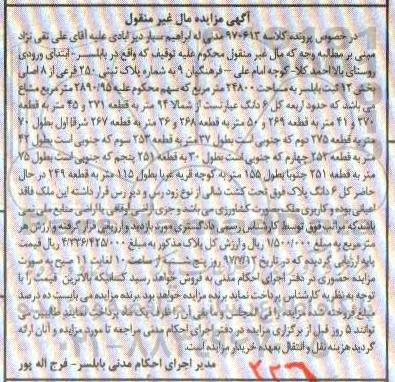 آگهی مزایده مال غیر منقول
در خصوص پرونده کلاسه ۹۷۰۶۱۳ مدنی له ابراهیم سیار دیزآبادی علیه آقای علی تقی نژاد
مبنی بر مطالبه وجه که مال غیر منقول محکوم علیه توقیف که واقع در بابلسر- ابتدای ورودی
روستای بالا احمد کلا- کوچه امام علی – فرهنگیان ۹ به شماره پلاک ثبتی ۲۵۰ فرعی از ۸ اصلی
بخش ۱۲ ثبت بابلسر به مساحت ۲۴۸۰۰ متر مربع که سهم محکوم علیه ۲۸۹۰/۹۵ متر مربع مشاع
می باشد که حدود اربعه کل ۶ دانگ عبارتست از شمالا ۹۴ متر به قطعه ۲۷۱ و ۴۵ متر به قطعه
۲۷۰ و ۴۱ متر به قطعه ۲۶۹ و ۵۰ متر به قطعه ۲۶۸ و ۳۶ متر به قطعه ۲۶۷ شرقا اول بطول ۷۰
متر به قطعه ۲۷۵ دوم که جنوبی است بطول ۳۷ متر به قطعه ۲۵۳ سوم که جنوبی است بطول ۴۲
متر به قطعه ۲۵۲ چهارم که جنوبی است بطول ۳۰ به قطعه ۲۵۱ پنجم که جنوبی است بطول ۷۵
متر به قطعه ۲۵۱ جنوبا بطول ۱۵۵ متر به کوچه قریه غربا بطول ۱۱۵ متر به قطعه ۲۴۹ در حال
حاضر کل ۶ دانگ پلاک فوق تحت کشت شالی از نوع زود رس و میان رس قرار داشته این ملک فاقد
مبنی بوده و کاربری ملک بصورت کشاورزی می باشد و جزئ اراضی وقفی یا اراضی منابع ملی نمی
باشد که مراتب فوق توسط کارشناس رسمی دادگستری مورد بازدید و ارزیابی قرار گرفته و ارزش هر
متر مربع به مبلغ ۱/۵۰۰/۰۰۰ ریال و ارزش کل پلاک مذکور به مبلغ ۴/۳۳۶/۴۲۵/۰۰۰ ریال قیمت
پایه ارزیابی گردیده که در تاریخ ۹۷/۷/۱۲ روز پنج شنبه از ساعت ۱۰ لغایت ۱۱ صبح به صورت
مزایده حضوری در دفتر اجرای احکام مدنی به فروش خواهد رسید کسانیکه بالاترین قیمت را با
توجه به نظریه کارشناس پرداخت نمایند برنده مزایده خواهد بود. برنده مزایده می بایست ده درصد
مبلغ فروخته شده مزایده را فی المجلس و ما بقی آن را ظرف یک ماه پرداخت نمایند طالبین می
توانند ۵ روز قبل از برگزاری مزایده در دفتر اجرای احکام مدنی مراجعه تا مورد مزایده و آنان ارائه
گردید هزینه نقل و انتقال بعهده خریدار مزایده است.
مدیر اجرای احکام مدنی بابلسر- فرج اله پور
۲۲۶